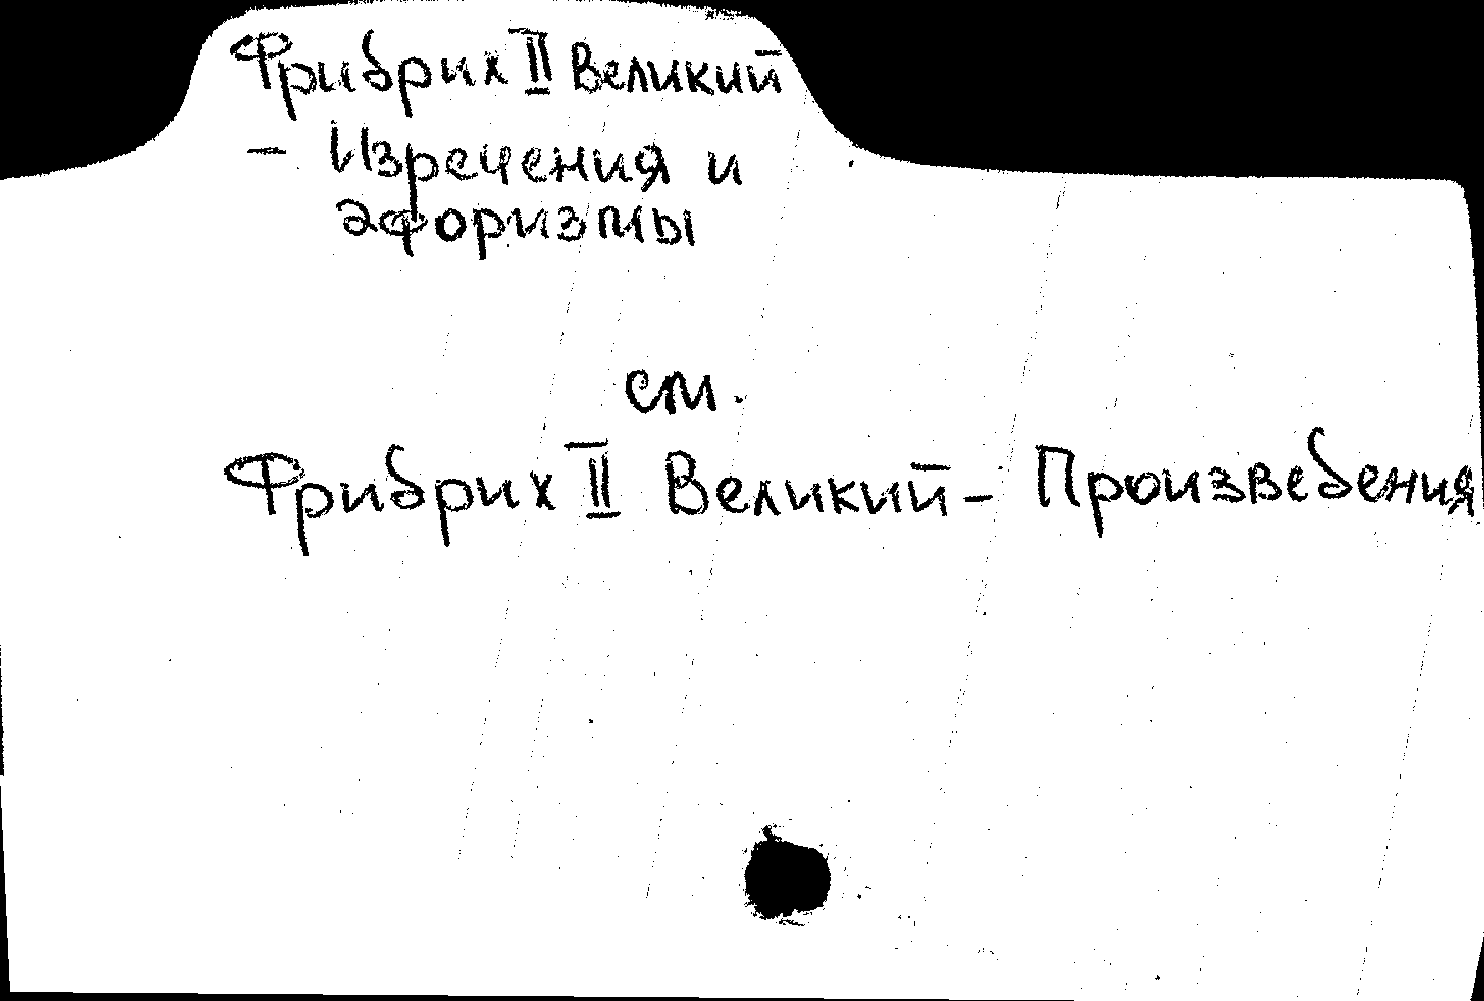 Фридрих II Великий
- Изречения и
афоризмы
см.
Фридрих II Великий - Произведения